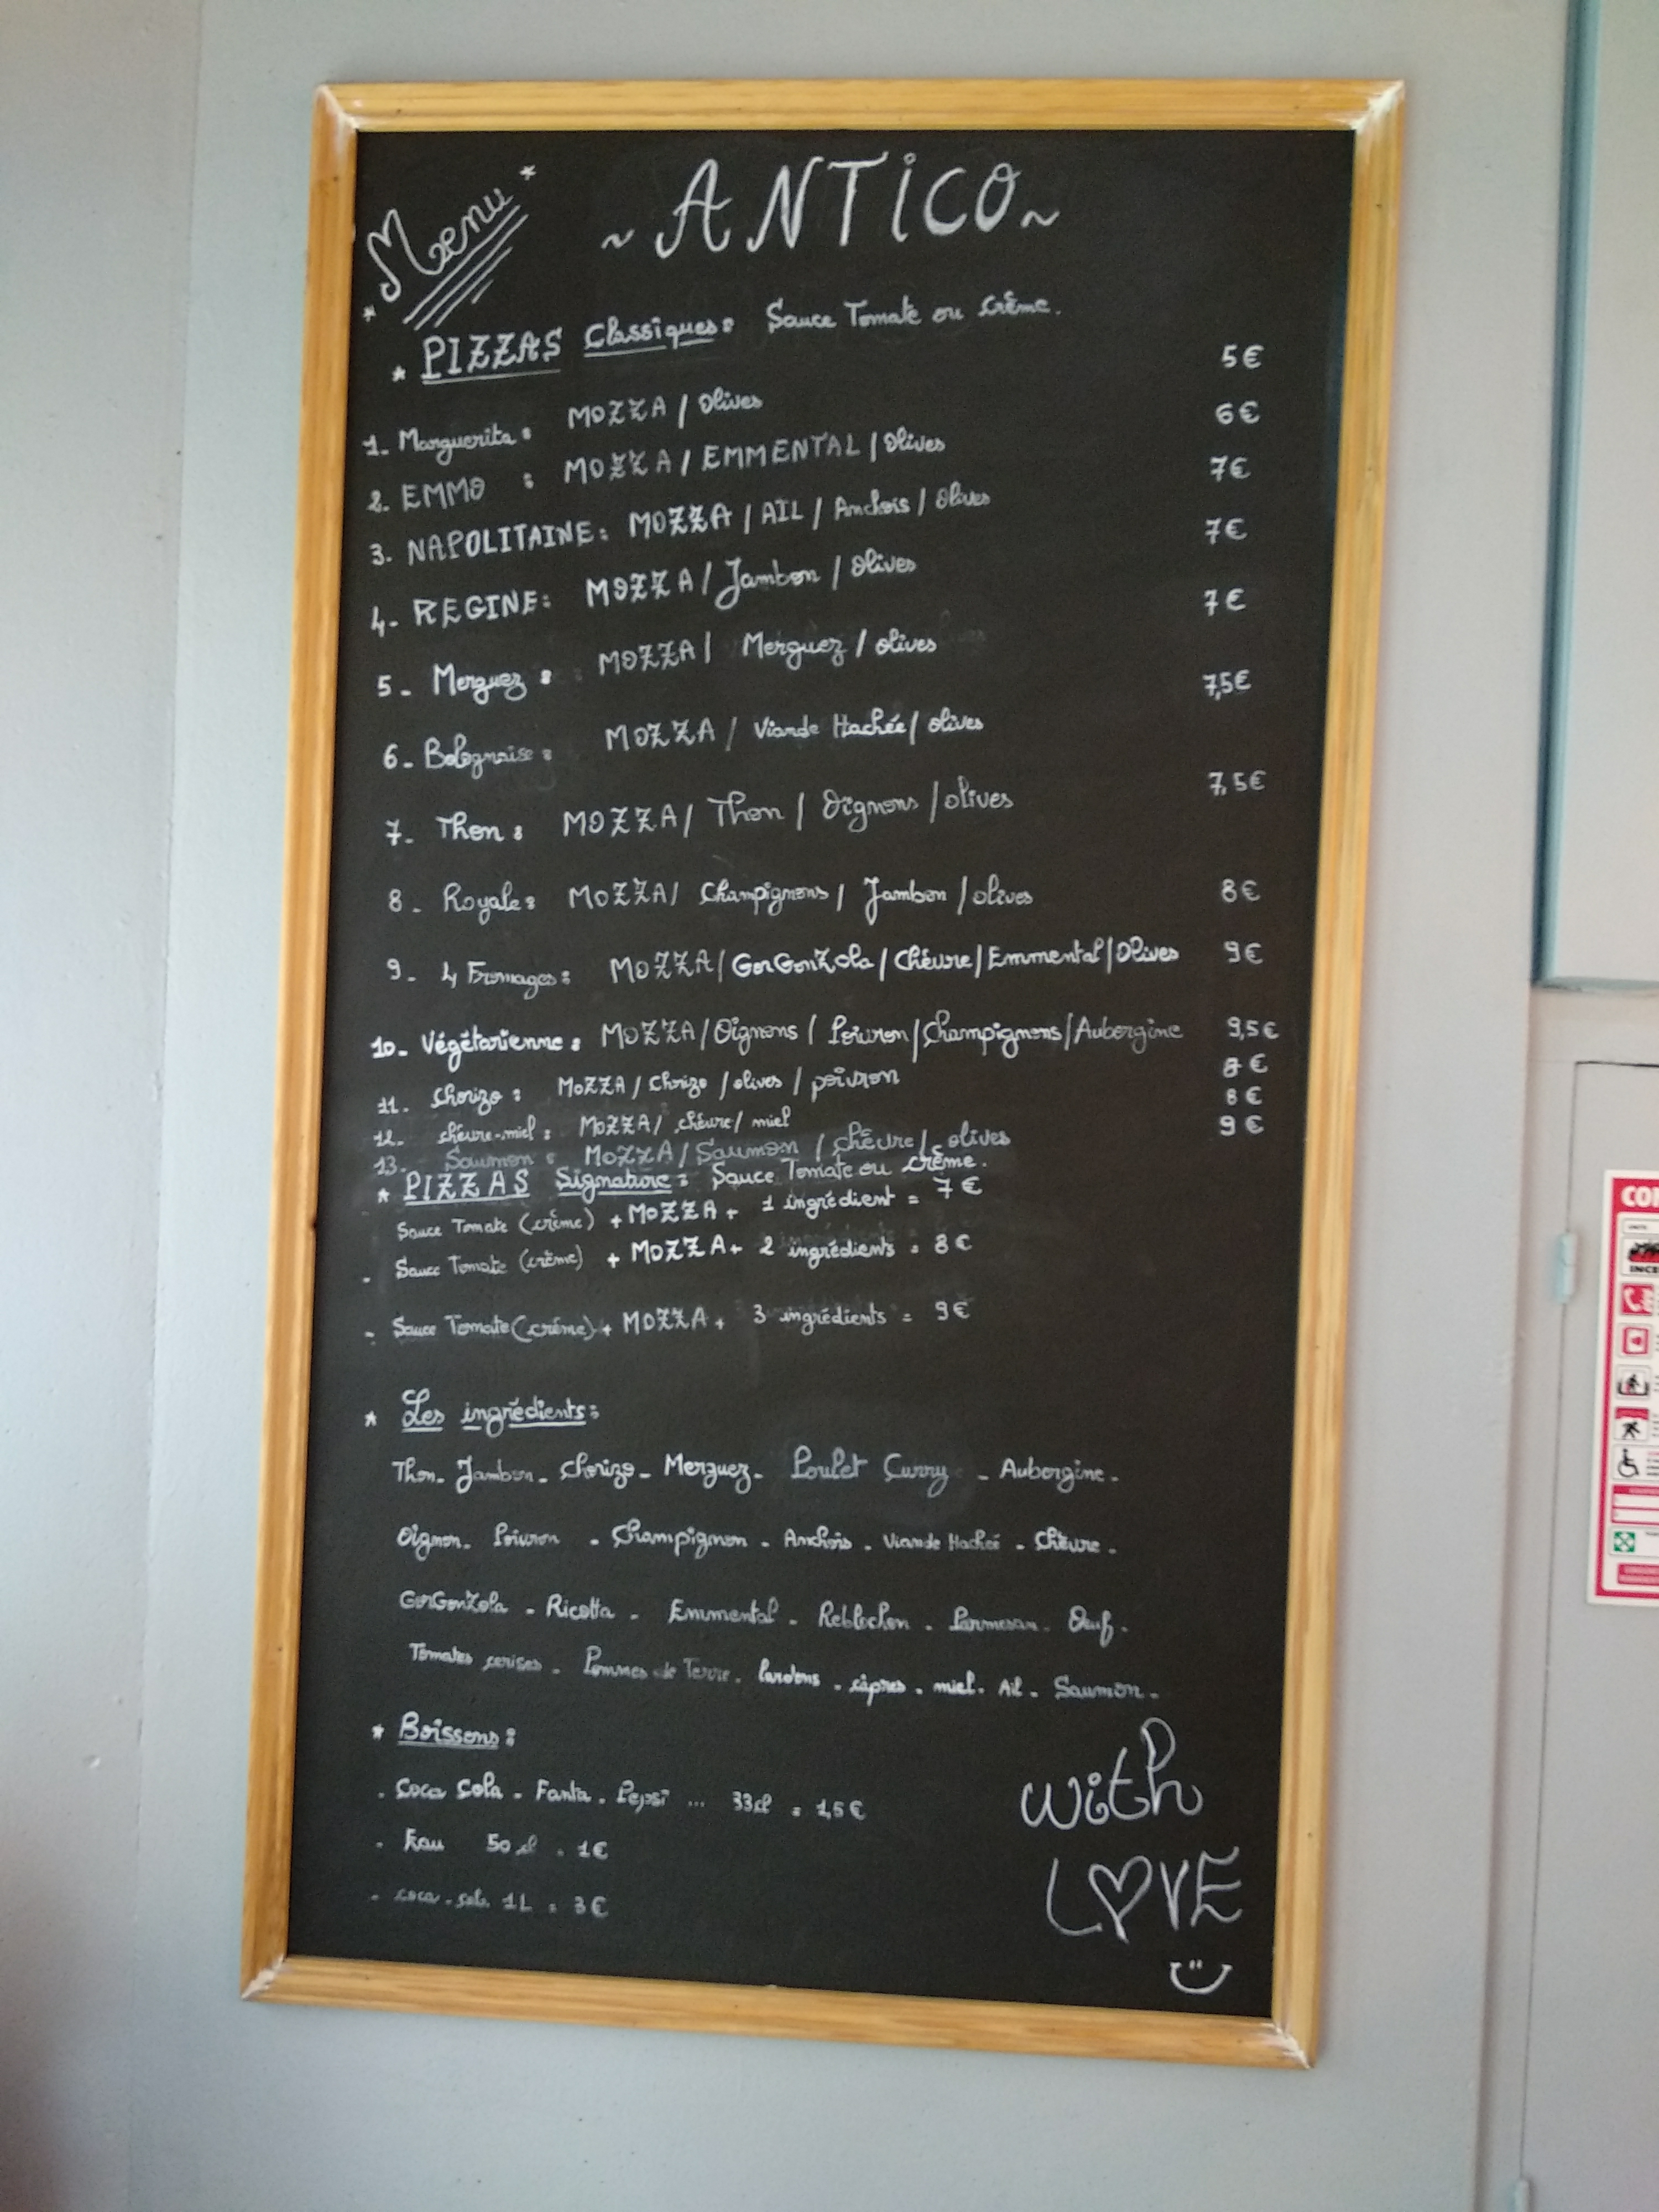 Menu
~ ANTiCO ~
* PIZZAS Classiques: Sauce Tomate ou Crème.
1. Marguerita: MOZZA / Olives 5€
2. EMMO : MOZZA / EMMENTAL / Olives 6€
3. NAPOLITAINE: MOZZA / AIL / Anchois / Olives 7€
4- REGINE: MOZZA / Jambon / Olives 7€
5- Merguez: MOZZA / Merguez / olives 7€
6- Bolognaise: MOZZA / Viande Hachée / olives 7,5€
7- Thon: MOZZA / Thon / Oignons / olives 7,5€
8- Royale: MOZZA / Champignons / Jambon / olives 8€
9- 4 Fromages: MOZZA / GorGonZola / Chèvre / Emmental / Olives 9€
10- Végétarienne: MOZZA / Oignons / Poivron / Champignons / Aubergine 9,5€
11. Chorizo: MOZZA / Chorizo / olives / poivron 8€
12- chèvre-miel: MOZZA / chèvre / miel 8€
13. Saumon: MOZZA / Saumon / chèvre / olives 9€
* PIZZAS Signature: Sauce Tomate ou crème.
Sauce Tomate (crème) + MOZZA + 1 ingrédient = 7€
- Sauce Tomate (crème) + MOZZA + 2 ingrédients = 8€
- Sauce Tomate (crème) + MOZZA + 3 ingrédients = 9€
* Les ingrédients:
Thon - Jambon - Chorizo - Merguez - Poulet Curry - Aubergine -
Oignon - Poivron - Champignon - Anchois - Viande Haché - Chèvre -
GorGonZola - Ricotta - Emmental - Reblochon - Parmesan - Oeuf -
Tomates cerises - Pommes de Terre - lardons - câpres - miel - Ail - Saumon -
* Boissons:
- Coca Cola - Fanta - Pepsi ... 33cl = 1,5€
- Eau 50 cl = 1€
- coca-cola 1L = 3€
with
LOVE
CO
INCE